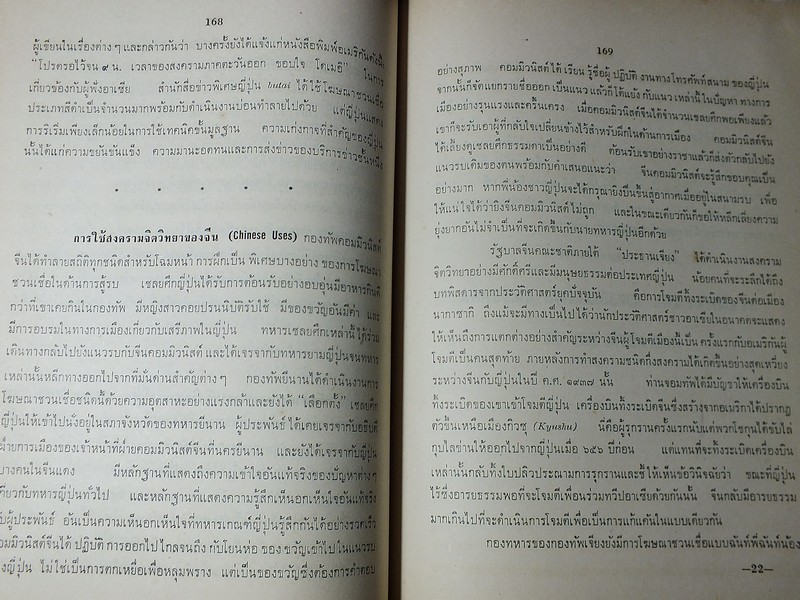 168
ผู้เขียนในเรื่องต่าง ๆ และกล่าวกันว่า บางครั้งยังได้แจ้งแก่หนังสือพิมพ์อเมริกันดังนี้
"โปรดรอไว้จน ๙ น. เวลาของสงครามภาคตะวันออก ขอบใจ โดเมอิ" ในการ
เกี่ยวข้องกับผู้ฟังอาเซีย สำนักสื่อข่าวพิเศษญี่ปุ่น butai ได้ใช้โฆษณาชวนเชื่อ
ประเภทสีดำเป็นจำนวนมากพร้อมกับดำเนินงานบ่อนทำลายไปด้วย แต่ญี่ปุ่นแสดง
การริเริ่มเพียงเล็กน้อยในการใช้เทคนิคขั้นมูลฐาน ความเก่งกาจที่สำคัญของญี่ปุ่น
นั้นได้แก่ความขยันขันแข็ง ความมานะอดทนและการส่งข่าวของบริการข่าวชั้นหนึ่ง
* * * * *
การใช้สงครามจิตวิทยาของจีน (Chinese Uses) กองทัพคอมมิวนิสต์
จีนได้ทำลายสถิติทุกชนิดสำหรับโฉมหน้า การฝึกเป็น พิเศษบางอย่าง ของการโฆษณา
ชวนเชื่อในด้านการสู้รบ เชลยศึกญี่ปุ่นได้รับการต้อนรับอย่างอบอุ่นมีอาหารกินดี
กว่าที่เขาเคยกินในกองทัพ มีหญิงสาวคอยปรนนิบัติรับใช้ มีของขวัญอันมีค่า และ
มีการอบรมในทางการเมืองเกี่ยวกับเสรีภาพในญี่ปุ่น ทหารเชลยศึกเหล่านี้ได้ร่วม
เดินทางกลับไปยังแนวรบกับจีนคอมมิวนิสต์ และได้เจรจากับทหารยามญี่ปุ่นจนทหาร
เหล่านั้นหลีกทางออกไปจากที่มั่นด่านสำคัญต่าง ๆ กองทัพยีนานได้ดำเนินงานการ
โฆษณาชวนเชื่อชนิดนี้ด้วยความอุตสาหะอย่างแรงกล้าและยังได้ "เลือกตั้ง" เชลยศึก
ญี่ปุ่นให้เข้าไปนั่งอยู่ในสภาจังหวัดของทหารยีนาน ผู้ประพันธ์ ได้เคยเจรจากับอธิบดี
ฝ่ายการเมืองของเจ้าหน้าที่ฝ่ายคอมมิวนิสต์จีนที่นครยีนาน และยังได้เจรจากับญี่ปุ่น
บางคนในจีนแดง มีหลักฐานที่แสดงถึงความเข้าใจอันแท้จริงของปัญหาต่างๆ
เกี่ยวกับทหารญี่ปุ่นทั่วไป และหลักฐานที่แสดงความรู้สึกเห็นอกเห็นใจอันแท้จริง
ผู้ประพันธ์ อันเป็นความเห็นอกเห็นใจที่ทหารเกณฑ์ญี่ปุ่นรู้สึกกันได้อย่างรวดเร็ว
คอมมิวนิสต์จีนได้ ปฏิบัติ การออกไป ไกลจนถึง กับโยนห่อ ของ ขวัญเข้าไปในแนวรบ
ของญี่ปุ่น ไม่ใช่เป็นการตกเหยื่อเพื่อหลุมพราง แต่เป็นของขวัญซึ่งต้องการคำตอบ
169
อย่างสุภาพ คอมมิวนิสต์ได้ เรียน รู้ชื่อผู้ ปฏิบัติ งานทางโทรศัพท์สนาม ของญี่ปุ่น
จากนั้นก็จัดแยกรายชื่อออก เป็นแนว แล้วก็โต้แย้ง กับแนว เหล่านี้ในปัญหา ทางการ
เมืองอย่างรุนแรงและครื้นเครง เมื่อคอมมิวนิสต์จีนได้จำนวนเชลยศึกพอเพียงแล้ว
เขาก็จะรับเอาผู้ที่กลับใจเปลี่ยนข้างไว้สำหรับฝึกในด้านการเมือง คอมมิวนิสต์จีน
ได้เลี้ยงดูเชลยศึกธรรมดาเป็นอย่างดี ต้อนรับเขาอย่างราชาแล้วก็ส่งตัวกลับไปยัง
แนวรบเดิมของตนพร้อมกับคำเสนอแนะว่า จีนคอมมิวนิสต์จะรู้สึกขอบคุณเป็น
อย่างมาก หากพี่น้องชาวญี่ปุ่นจะได้กรุณายิงปืนขึ้นสู่อากาศเมื่ออยู่ในสนามรบ เพื่อ
ให้แน่ใจได้ว่ายิงจีนคอมมิวนิสต์ไม่ถูก และในขณะเดียวกันก็ขอให้หลีกเลี่ยงความ
ยุ่งยากอันไม่จำเป็นที่จะเกิดขึ้นกับนายทหารญี่ปุ่นอีกด้วย
รัฐบาลจีนคณะชาติภายใต้ "ประธานเจียง" ได้ดำเนินงานสงคราม
จิตวิทยาอย่างมีศักดิ์ศรีและมีมนุษยธรรมต่อประเทศญี่ปุ่น น้อยคนที่จะระลึกได้ถึง
บทพิสดารจากประวัติศาสตร์ยุคปัจจุบัน คือการโจมตีทิ้งระเบิดของจีนต่อเมือง
นากาซากิ ถึงแม้จะมีทางเป็นไปได้ว่านักประวัติศาสตร์ชาวอาเซียในอนาคตจะแสดง
ให้เห็นถึงการแตกต่างอย่างสำคัญระหว่างจีนผู้โจมตีเมืองนี้เป็น ครั้งแรกกับอเมริกันผู้
โจมตีเป็นคนสุดท้าย ภายหลังการทำสงครามชนิดกึ่งสงครามได้เกิดขึ้นอย่างสุดเหวี่ยง
ระหว่างจีนกับญี่ปุ่นในปี ค.ศ. ๑๙๓๗ นั้น ท่านจอมทัพได้มีบัญชาให้เครื่องบิน
ทิ้งระเบิดของเขาเข้าโจมตีญี่ปุ่น เครื่องบินทิ้งระเบิดจีนซึ่งสร้างจากอเมริกาได้ปรากฏ
ตัวขึ้นเหนือเมืองกิวชู (Kyushu) นี่คือผู้รุกรานครั้งแรกนับแต่พวกโชกุนได้ขับไล่
กุบไลข่านให้ออกไปจากญี่ปุ่นเมื่อ ๖๕๖ ปีก่อน แต่แทนที่จะทิ้งระเบิดเครื่องบิน
เหล่านั้นกลับทิ้งใบปลิวประณามการรุกรานและชี้ให้เห็นข้อวินิจฉัยว่า ขณะที่ญี่ปุ่น
ไร้ซึ่งอารยธรรมพอที่จะโจมตีเพื่อนร่วมทวีปอาเซียด้วยกันนั้น จีนกลับมีอารยธรรม
มากเกินไปที่จะดำเนินการโจมตีเพื่อเป็นการแก้แค้นในแบบเดียวกัน
กองทหารของกองทัพเจียงยังมีการโฆษณาชวนเชื่อแบบฉันท์พี่ฉันท์น้อง
—22—